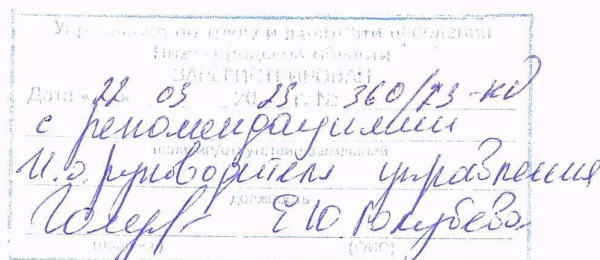 Управление по труду и занятости населения
Нижегородской области
ЗАРЕГИСТРИРОВАН
Дата «22» 03 2023 г. № 360/23-КД
с рекомендациями
наличие/отсутствие замечаний
И.о. руководителя управления
должность
Е Ю Голубева
(подпись) (ФИО)